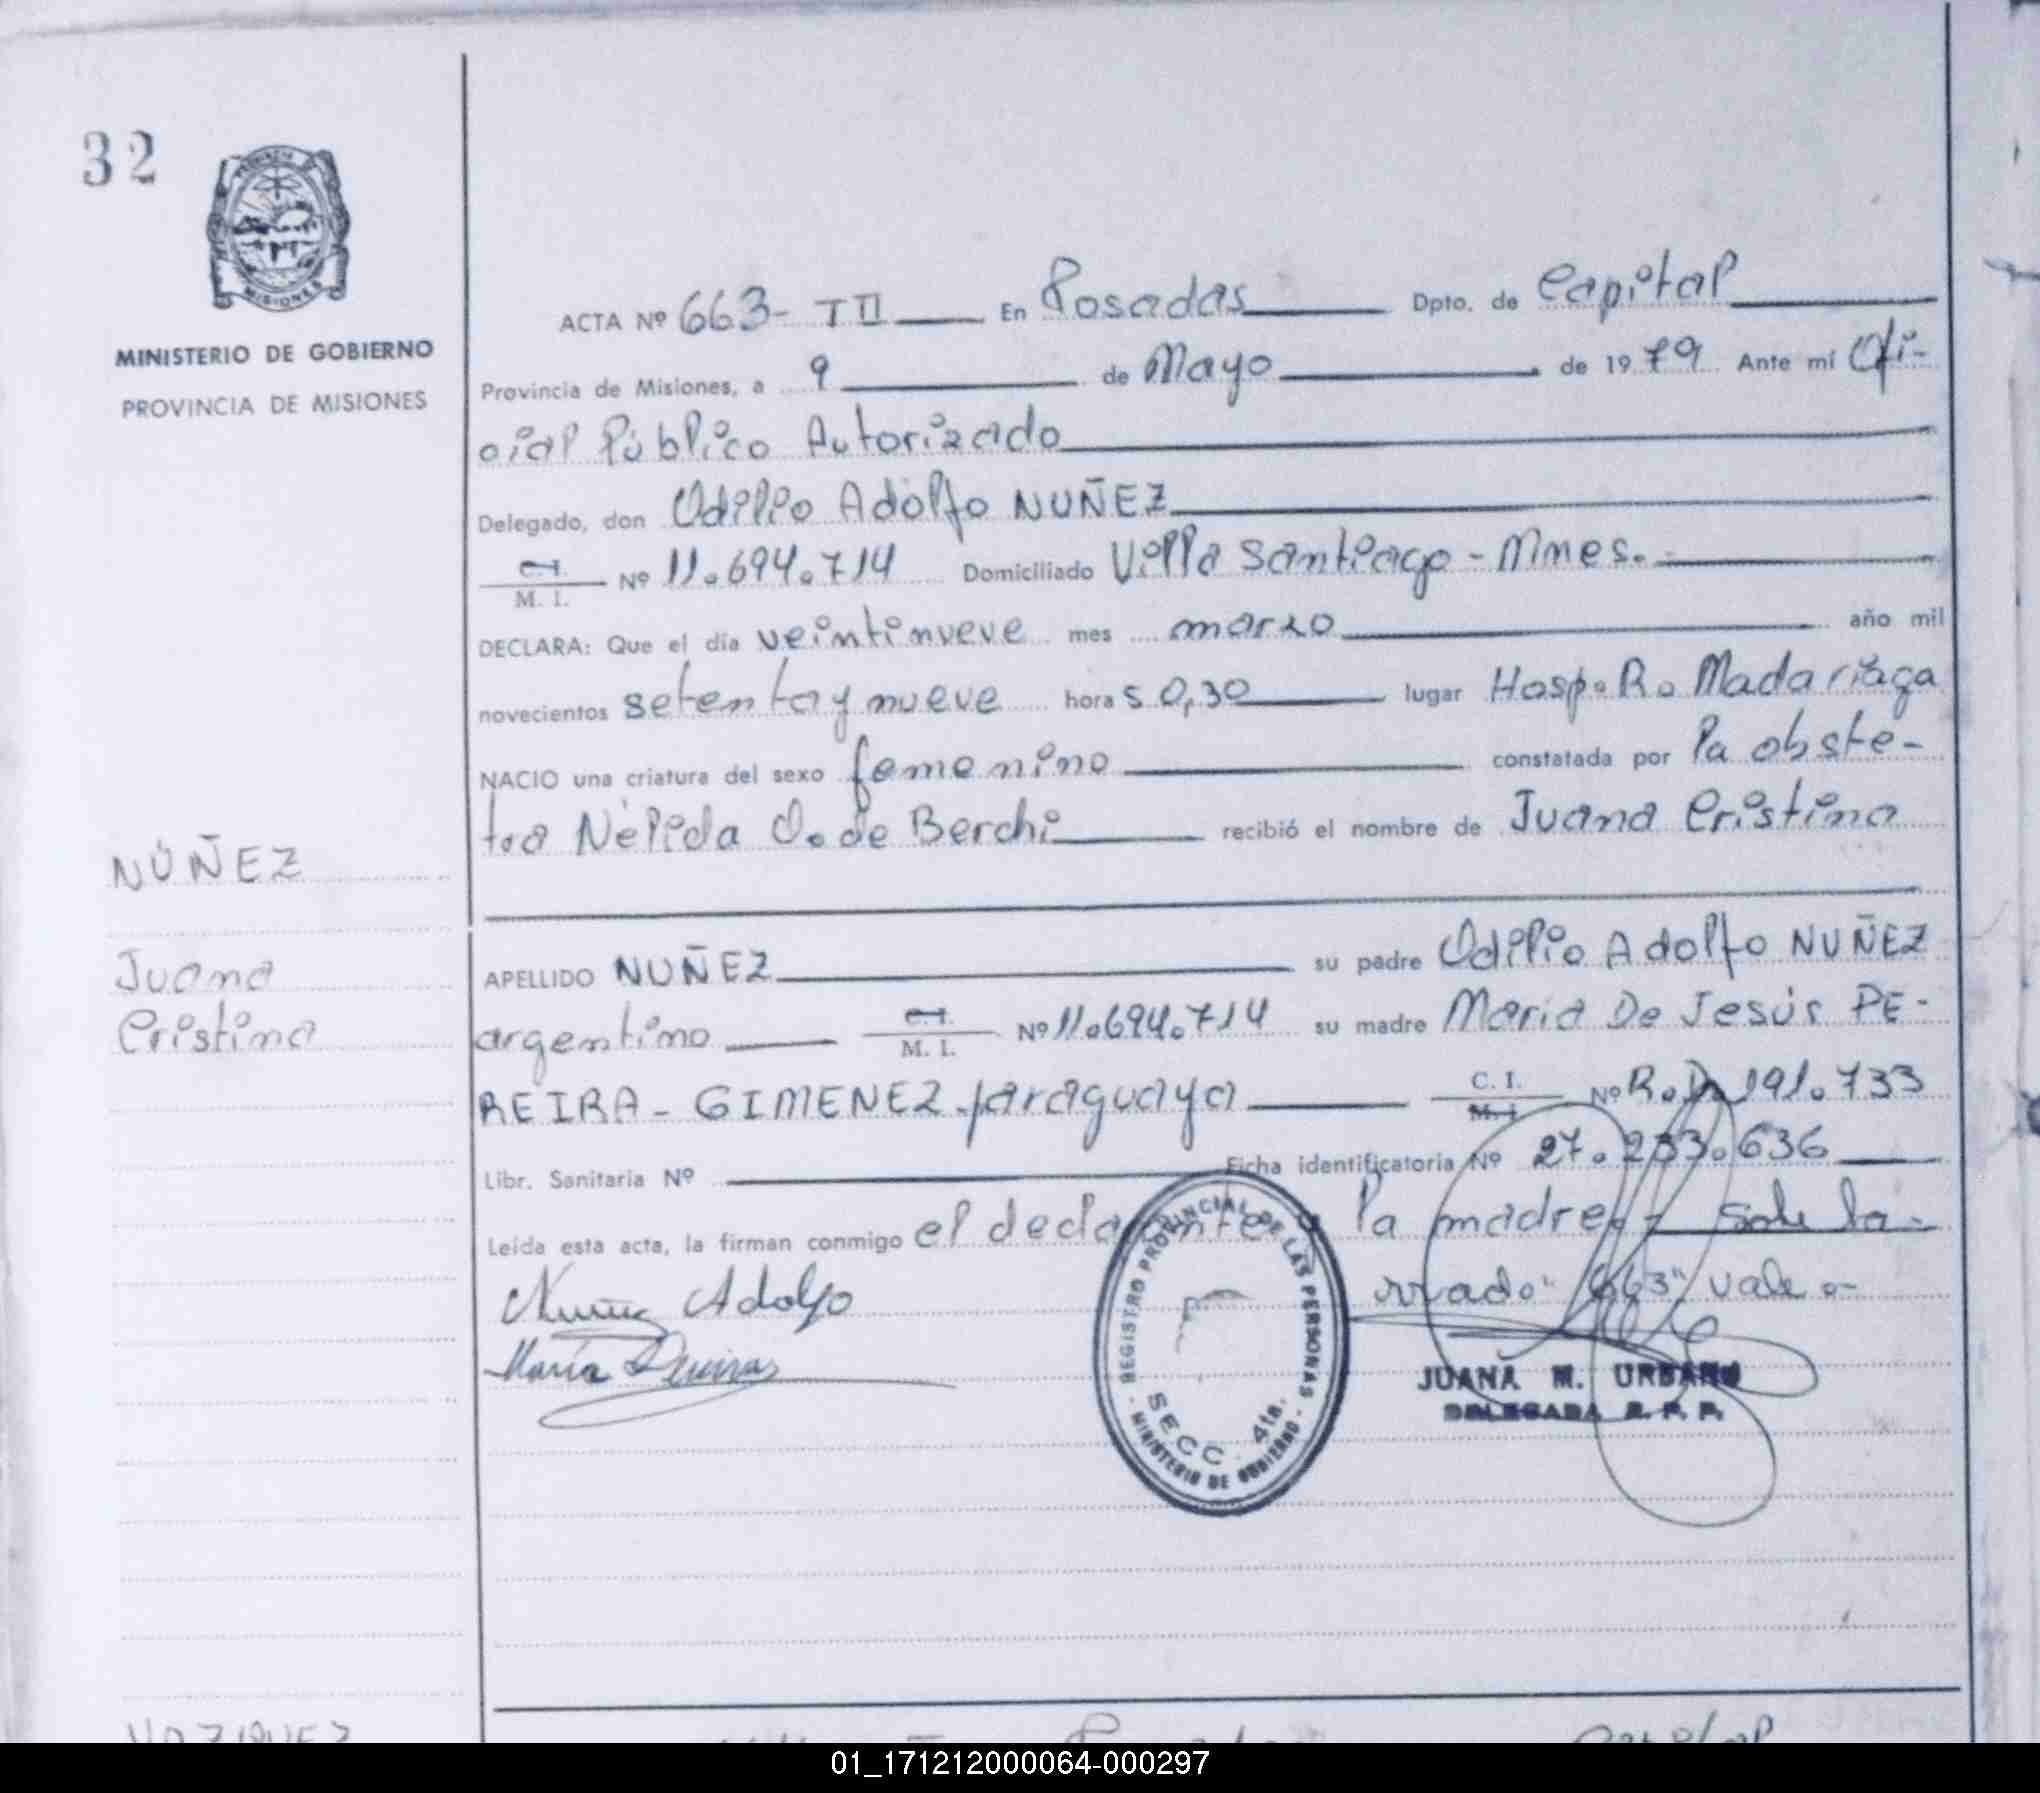 32
PROVINCIA DE
MISIONES
MINISTERIO DE GOBIERNO
PROVINCIA DE MISIONES
ACTA Nº 663- T II En Posadas Dpto. de Capital
Provincia de Misiones, a 9 de Mayo de 1979 Ante mi Ofi-
cial Público Autorizado
Delegado, don Odilio Adolfo NUÑEZ
C.I. M. I. Nº 11.694.714 Domiciliado Villa Santiago - Mnes.
DECLARA: Que el día veintinueve mes marzo año mil
novecientos setenta y nueve hora s 0,30 lugar Hosp. R. Madariaga
NACIO una criatura del sexo femenino constatada por la obste-
tra Nélida O. de Berchi recibió el nombre de Juana Cristina
NÚÑEZ
Juana
Cristina
APELLIDO NUÑEZ su padre Odilio Adolfo NUÑEZ
argentino C.I. M. I. Nº 11.694.714 su madre Maria De Jesús PE-
REIRA - GIMENEZ - paraguaya C. I. M. I Nº R.D. 191.733
Libr. Sanitaria Nº Ficha identificatoria Nº 27.233.636
Leída esta acta, la firman conmigo el declarante y la madre.- Sobre ra-
Nuñez Adolfo rrado "663" vale.-
María Pereira
REGISTRO PROVINCIAL DE LAS PERSONAS
SECC. 4ta.
- MINISTERIO DE GOBIERNO -
JUANA M. URBANO
DELEGADA R. P. P.
01_171212000064-000297